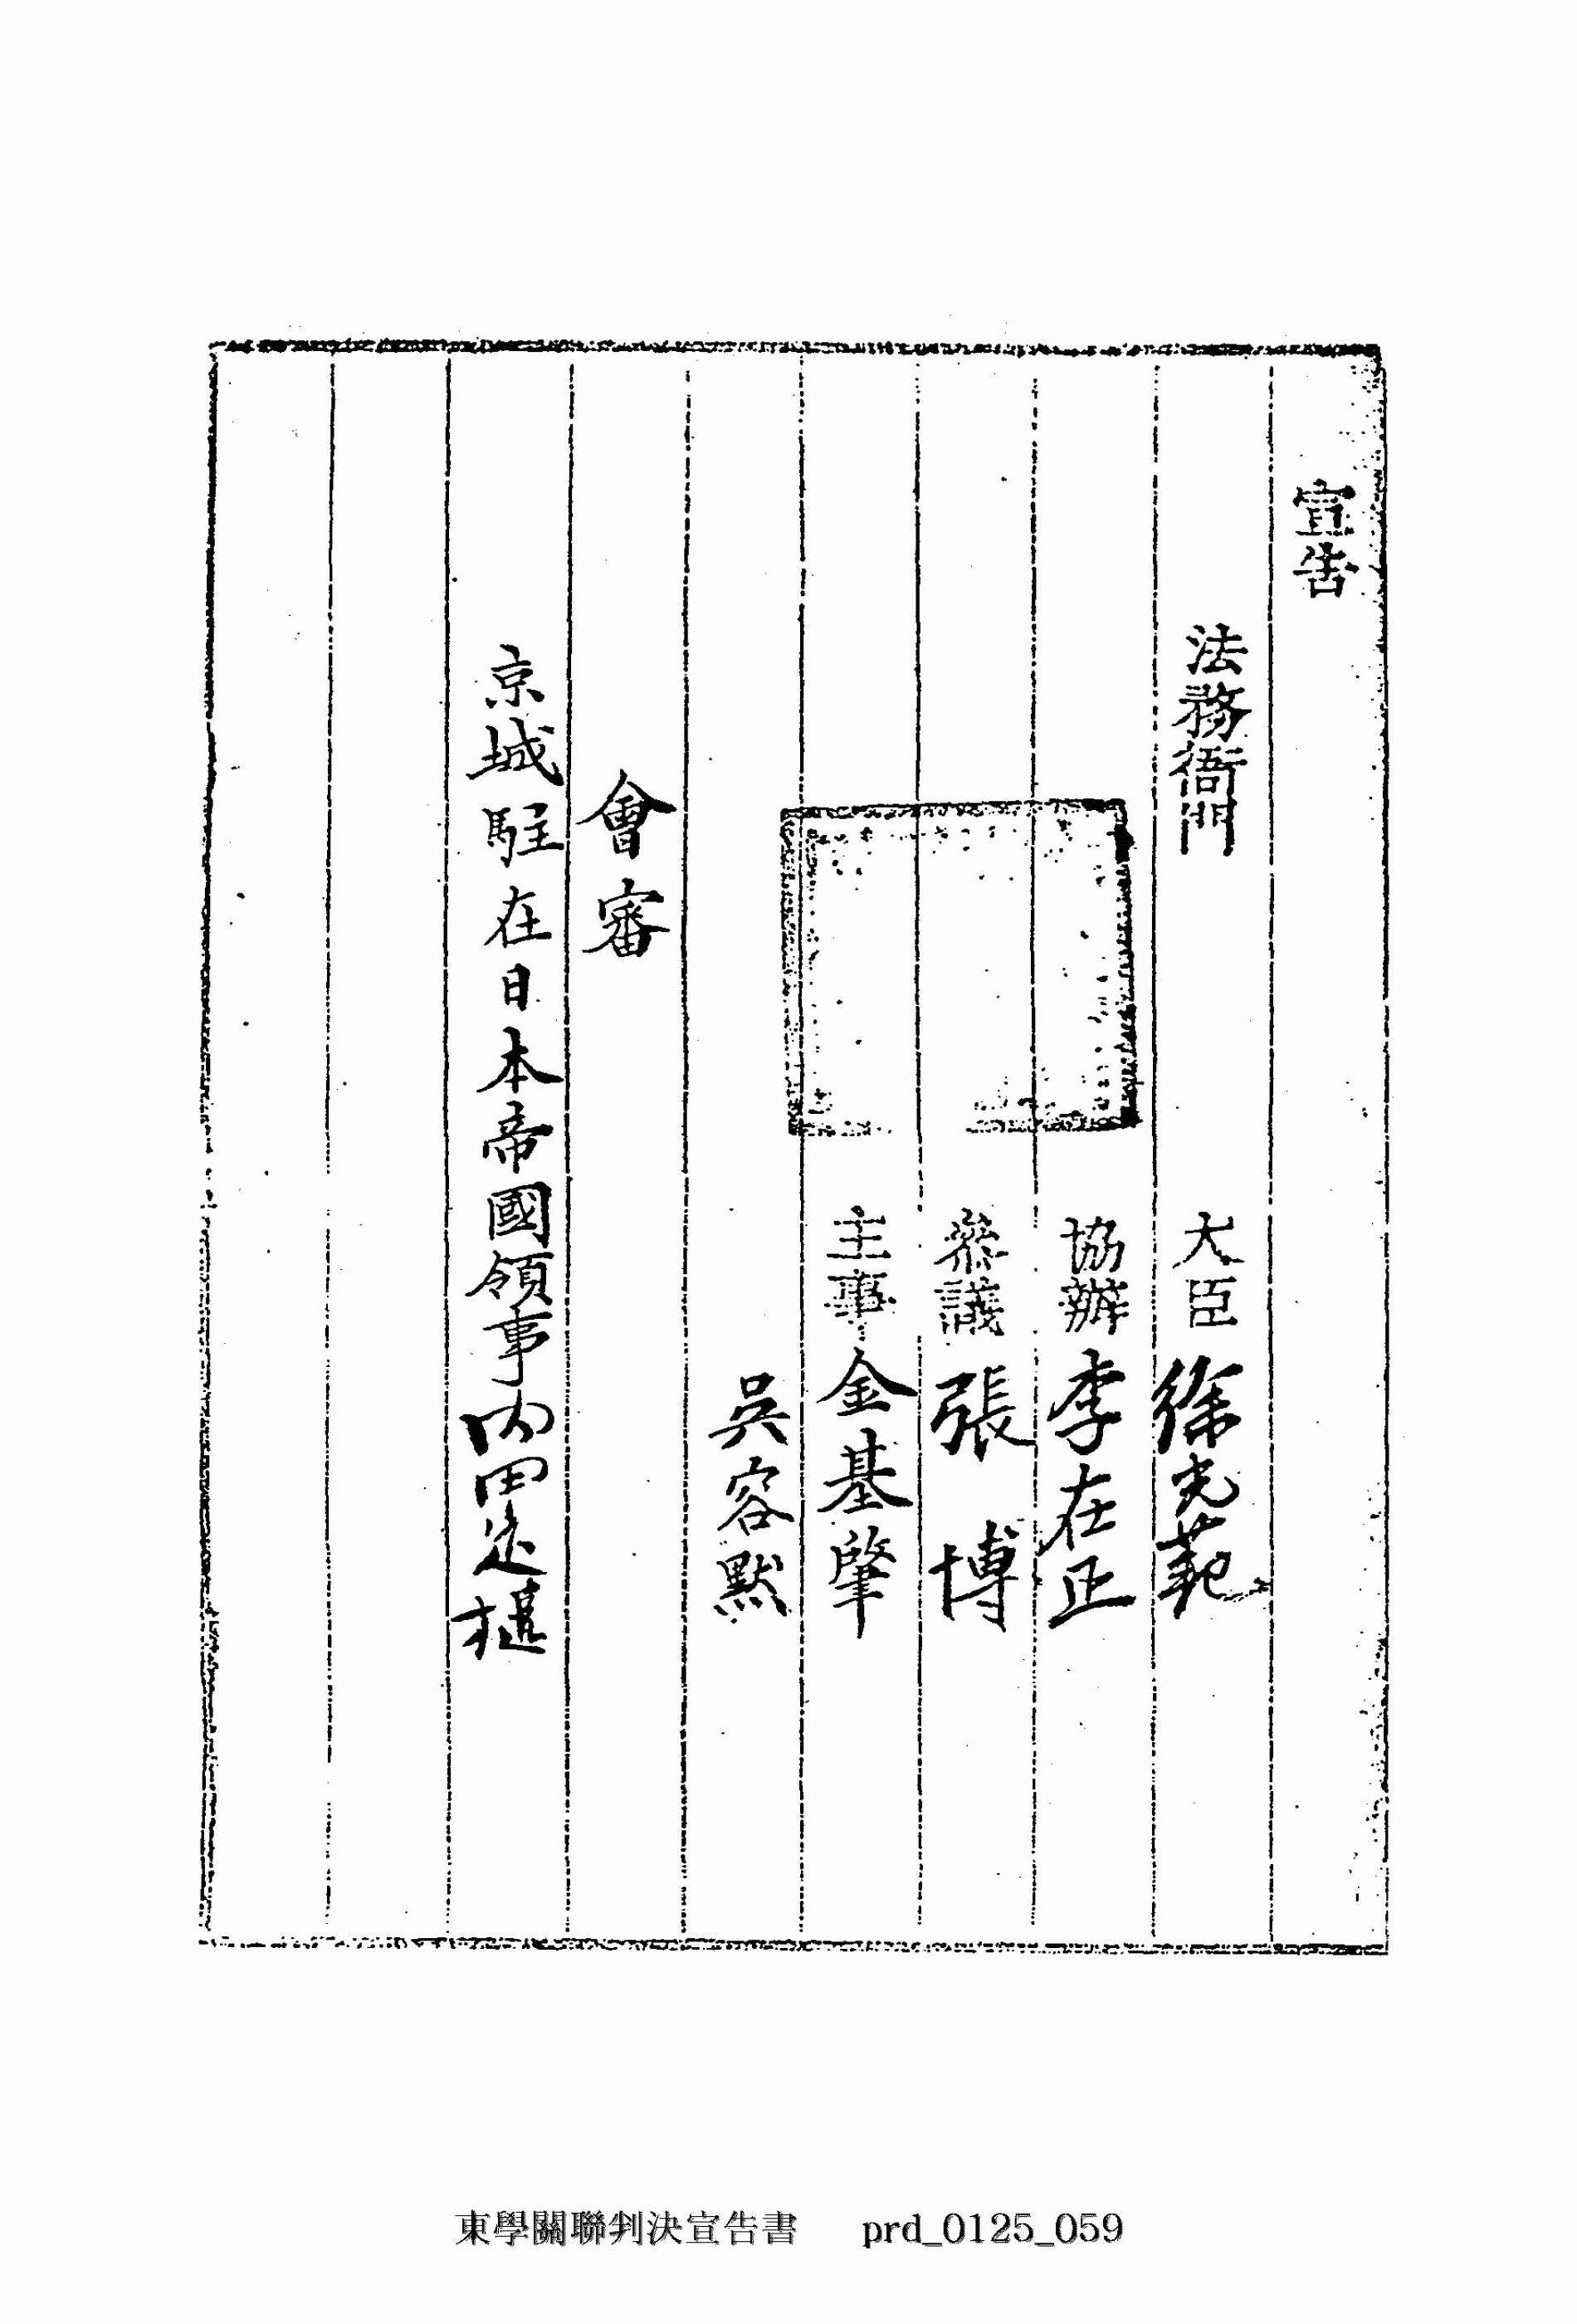 宣告
法務衙門 大臣 徐光範
協辦 李在正
參議 張 博
主事 金基肇
吳容默
會審
京城駐在日本帝國領事 內田定槌
東學關聯判決宣告書 prd_0125_059